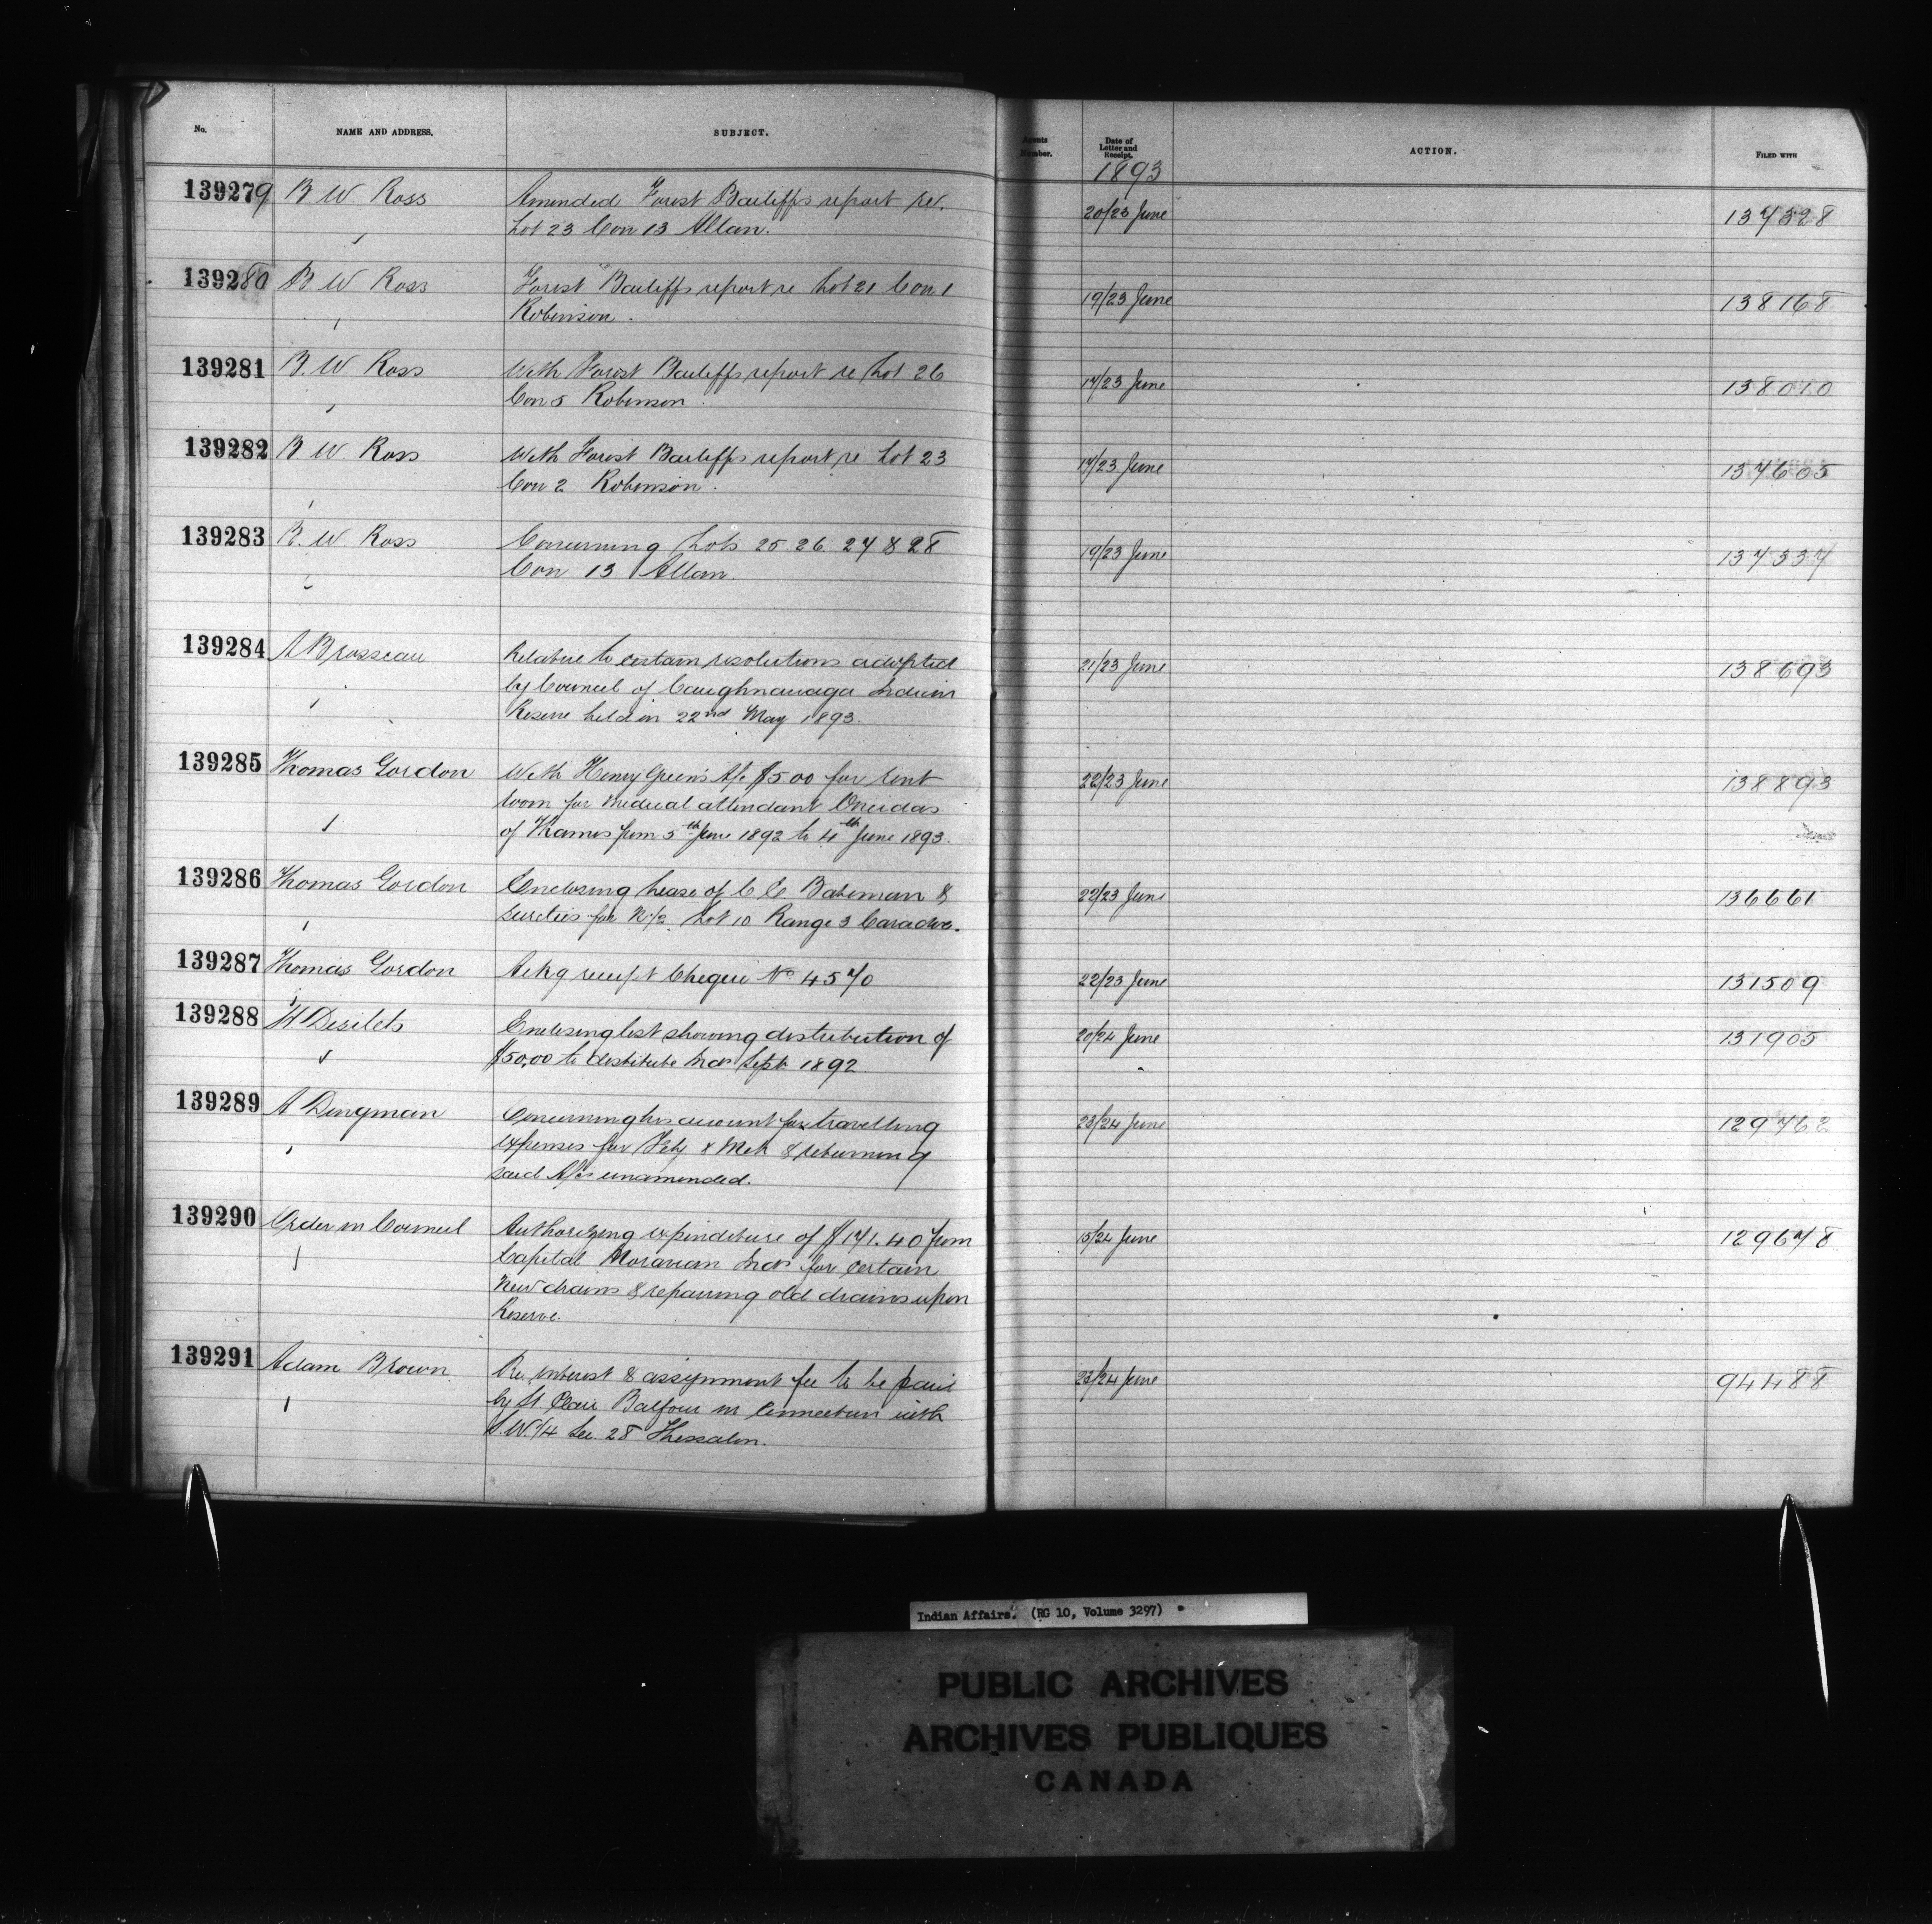 No. NAME AND ADDRESS. SUBJECT. Agents Number. Date of Letter and Receipt. ACTION. FILED WITH
1893
139279 B W Ross Amended Forest Bailiffs report re. 20/23 June 137328
Lot 23 Con 13 Allan.
139280 B W Ross Forest Bailiffs report re Lot 21 Con 1 19/23 June 138168
Robinson.
139281 B W Ross With Forest Bailiffs report re Lot 26 17/23 June 138010
Con 5 Robinson.
139282 B W Ross With Forest Bailiffs report re Lot 23 17/23 June 137605
Con 2 Robinson.
139283 B. W Ross Concerning Lots 25 26 27 & 28 19/23 June 137337
Con 13 Allan.
139284 A Brosseau Relative to certain resolutions adopted 21/23 June 138693
by Council of Caughnawaga Indian
Reserve held on 22nd May 1893.
139285 Thomas Gordon With Henry Green's A/c $5.00 for rent 22/23 June 138893
room for Medical attendant Oneidas
of Thames from 5th June 1892 to 4th June 1893.
139286 Thomas Gordon Enclosing Lease of C C Bateman & 22/23 June 136661
sureties for N½ Lot 10 Range 3 Caradoc.
139287 Thomas Gordon Ackg receipt Cheque No 4570 22/23 June 131509
139288 H Desilets Enclosing list showing distribution of 20/24 June 131905
$50.00 to destitute Inds Sept 1892
139289 A Dingman Concerning his account for travelling 23/24 June 129762
expenses for Feby & Mch & returning
said A/cs unamended.
139290 Order in Council Authorizing expenditure of $171.40 from 15/24 June 129678
Capital Moravian Inds for certain
New drains & repairing old drains upon
Reserve.
139291 Adam Brown Re interest & assignment fee to be paid 23/24 June 94488
by St Clair Balfour in connection with
S.W.1/4 Sec. 28 Thessalon.
Indian Affairs. (RG 10, Volume 3297)
PUBLIC ARCHIVES
ARCHIVES PUBLIQUES
CANADA